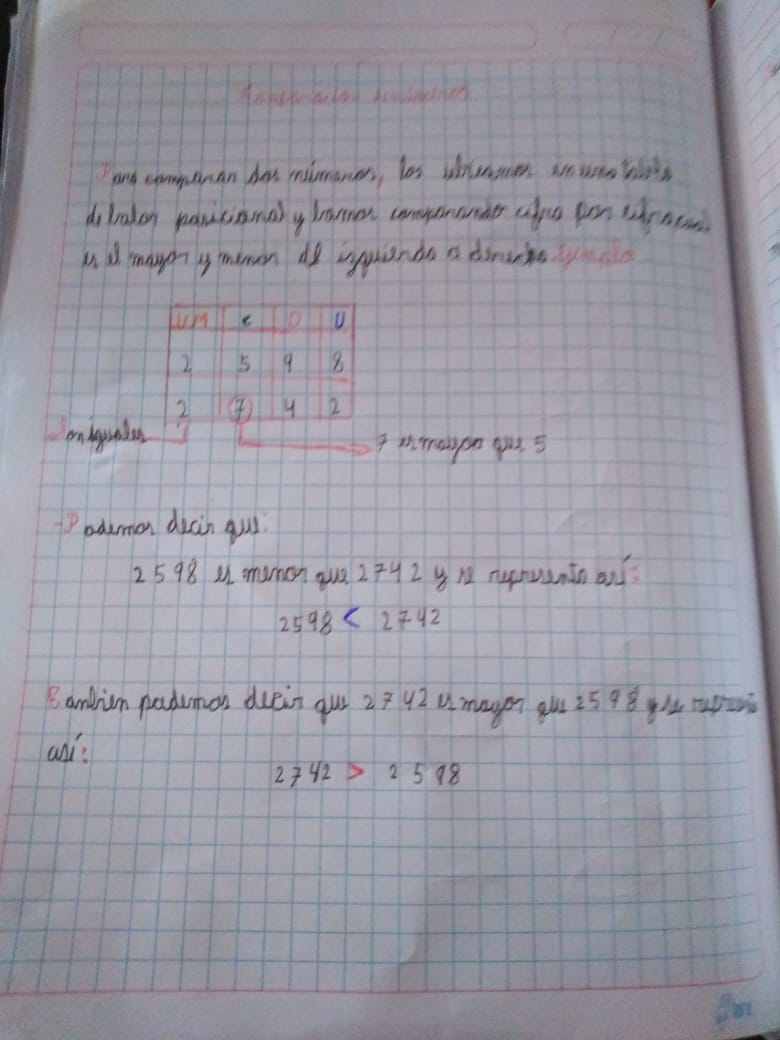 Comparación de números
Para comparar dos números, los ubicamos en una tabla
de balor posicional y bamos comparando cifra por cifra cual
es el mayor y menor de izquierda a derecha Ejemplo
UM C D U
2 5 9 8
2 7 4 2
Son iguales
7 es mayor que 5
-Podemos decir que:
2598 es menor que 2742 y se representa así:
2598 < 2742
Tanbien podemos decir que 2742 es mayor que 2598 y se
así:
2742 > 2598